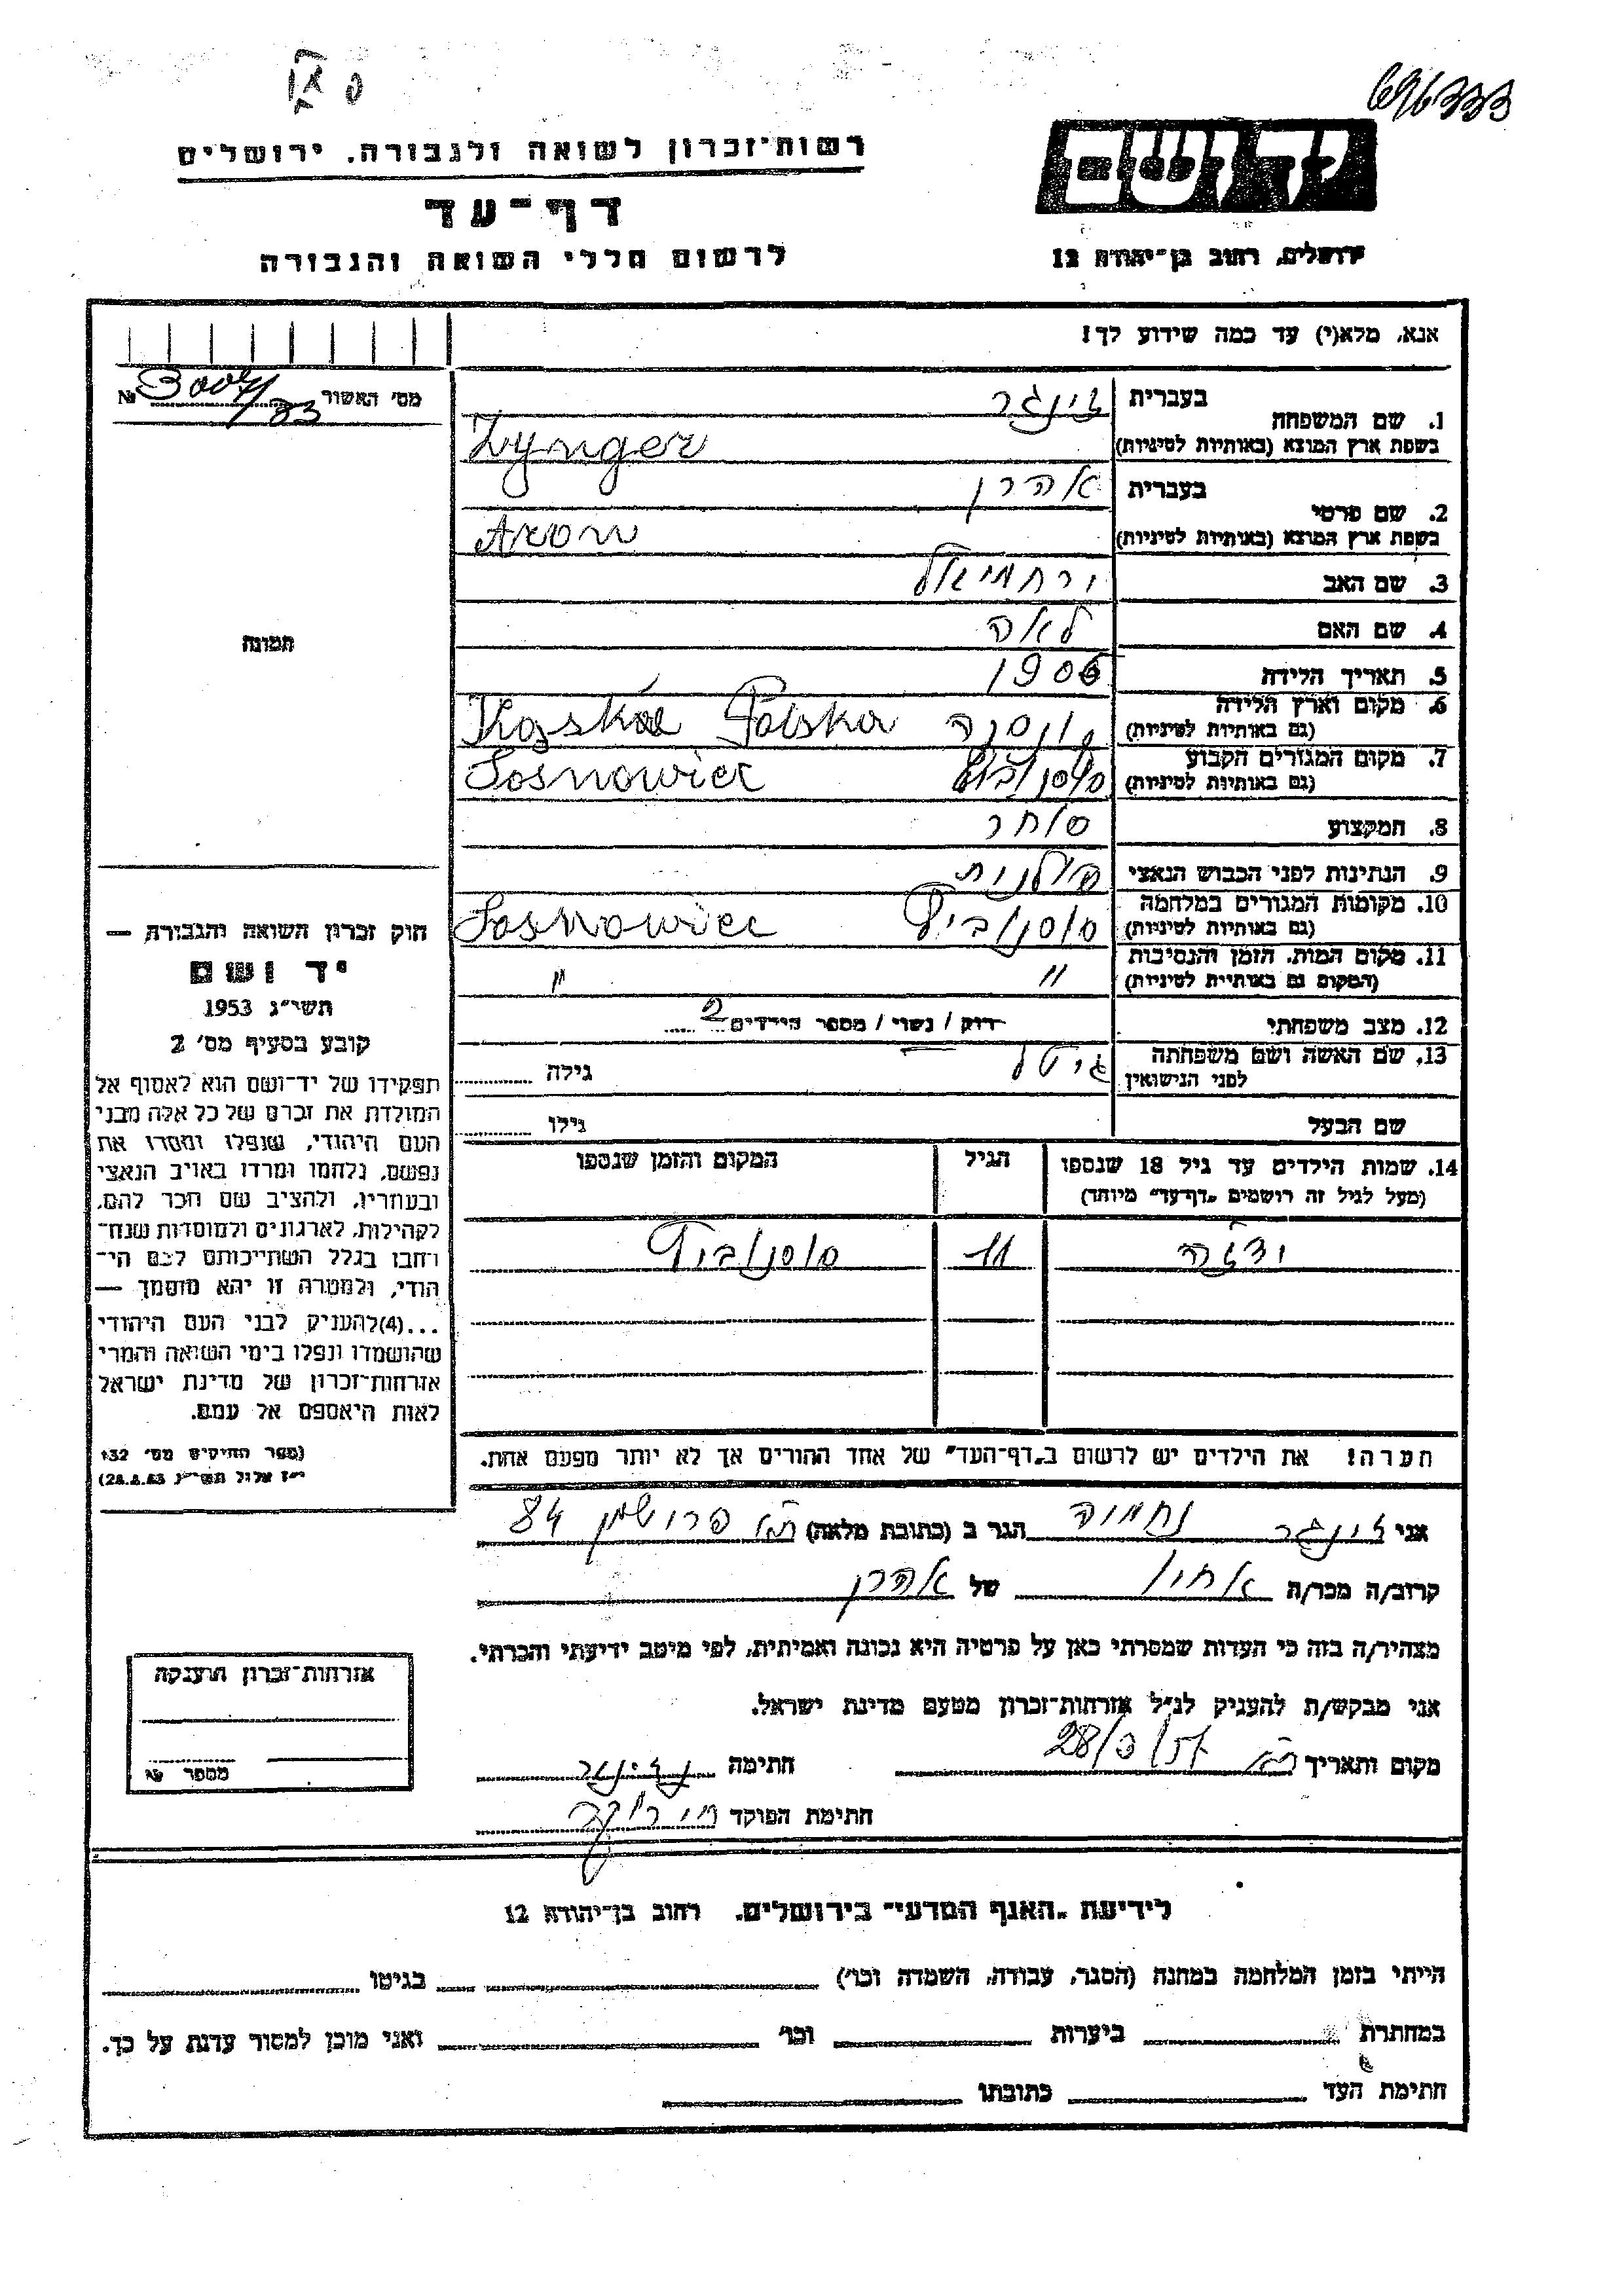 696333
רשות־זכרון לשואה ולגבורה, ירושלים
יד ושם
דף־עד
לרשום חללי השואה והגבורה
ירושלים, רחוב בן־יהודה 12
אנא, מלא(י) עד כמה שידוע לך!
מס' האשור № 3004/83
1. שם המשפחה
בעברית זינגר
בשפת ארץ המוצא (באותיות לטיניות) Zynger
2. שם פרטי
בעברית אהרן
בשפת ארץ המוצא (באותיות לטיניות) Aron
3. שם האב ירחמיאל
4. שם האם לאה
5. תאריך הלידה 1906
6. מקום וארץ הלידה
(גם באותיות לטיניות) Polska
7. מקום המגורים הקבוע
(גם באותיות לטיניות) Sosnowiec
8. המקצוע סוחר
9. הנתינות לפני הכבוש הנאצי פולנית
10. מקומות המגורים במלחמה
(גם באותיות לטיניות) סוסנוביץ Sosnowiec
11. מקום המות, הזמן והנסיבות
(המקום גם באותיות לטיניות) " "
12. מצב משפחתי רווק / נשוי / מספר הילדים 2
13. שם האשה ושם משפחתה
לפני הנישואין גיטל גילה
שם הבעל גילו
14. שמות הילדים עד גיל 18 שנספו
(מעל לגיל זה רושמים "דף־עד" מיוחד)
הגיל
המקום והזמן שנספו
11 סוסנוביץ
הערה! את הילדים יש לרשום ב"דף־העד" של אחד ההורים אך לא יותר מפעם אחת.
תמונה
חוק זכרון השואה והגבורה —
יד ושם
תשי"ג 1953
קובע בסעיף מס' 2
תפקידו של יד־ושם הוא לאסוף אל
המולדת את זכרם של כל אלה מבני
העם היהודי, שנפלו ומסרו את
נפשם, נלחמו ומרדו באויב הנאצי
ובעוזריו, ולהציב שם וזכר להם,
לקהילות, לארגונים ולמוסדות שנח־
רבו בגלל השתייכותם לעם הי־
הודי, ולמטרה זו יהא מוסמך —
...(4)להעניק לבני העם היהודי
שהושמדו ונפלו בימי השואה והמרי
אזרחות־זכרון של מדינת ישראל
לאות היאספם אל עמם.
(ספר החוקים מס' 132
י"ז אלול תשי"ג 28.8.53)
אני זינגר נחמיה הגר ב (כתובת מלאה) ת"א 84
קרוב/ה מכר/ה אחיו של אהרן
מצהיר/ה בזה כי העדות שמסרתי כאן על פרטיה היא נכונה ואמיתית, לפי מיטב ידיעתי והכרתי.
אני מבקש/ת להעניק לנ"ל אזרחות־זכרון מטעם מדינת ישראל.
מקום ותאריך ת"א חתימה נ. זינגר
חתימת הפוקד
אזרחות־זכרון הוענקה
מספר №
לידיעת "האגף המדעי" בירושלים, רחוב בן־יהודה 12
הייתי בזמן המלחמה במחנה (הסגר, עבודה, השמדה וכו') בגיטו
במחתרת ביערות וכו' ואני מוכן למסור עדות על כך.
חתימת העד כתובתו